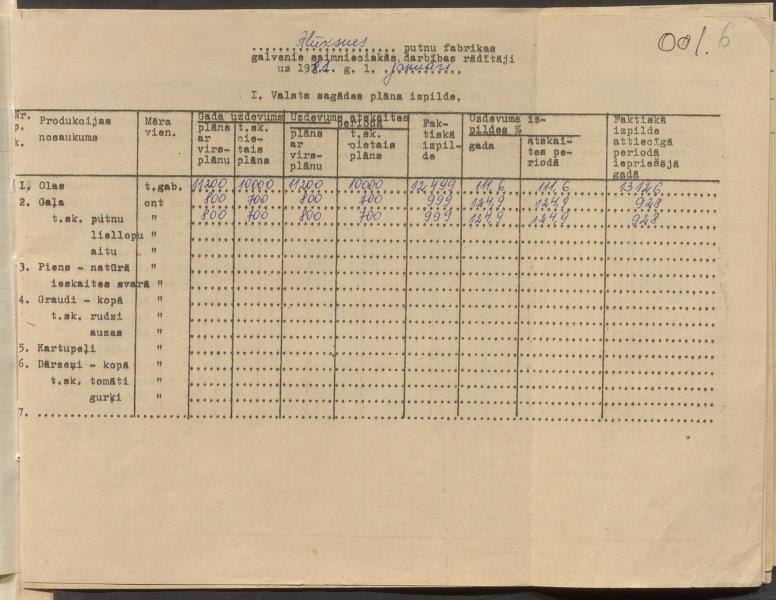 001. 6
Alūksnes putnu fabrikas
galvenie saimnieciskās darbības rādītāji
uz 1981. g. 1. janvāri.
I. Valsts sagādes plāna izpilde.
Nr. p. k. Produkcijas nosaukums Mēra vien. Gada uzdevums plāns ar virsplānu t.sk. cietais plāns Uzdevums atskaites periodā plāns ar virsplānu t.sk. cietais plāns Faktiskā izpilde Uzdevums izpildes % gada atskaites periodā Faktiskā izpilde attiecīgā periodā iepriešējā gadā
1. Olas t.gab. 11200 10000 11200 10000 12499 111,6 111,6 13126
2. Gaļa cnt 800 700 800 700 999 124,9 124,9 928
t.sk. putnu " 800 700 800 700 999 124,9 124,9 928
liellopu "
aitu "
3. Piens - natūrā "
ieskaites svarā "
4. Graudi - kopā "
t.sk. rudzi "
auzas "
5. Kartupeļi "
6. Dārzeņi - kopā "
t.sk. tomāti "
gurķi "
7.